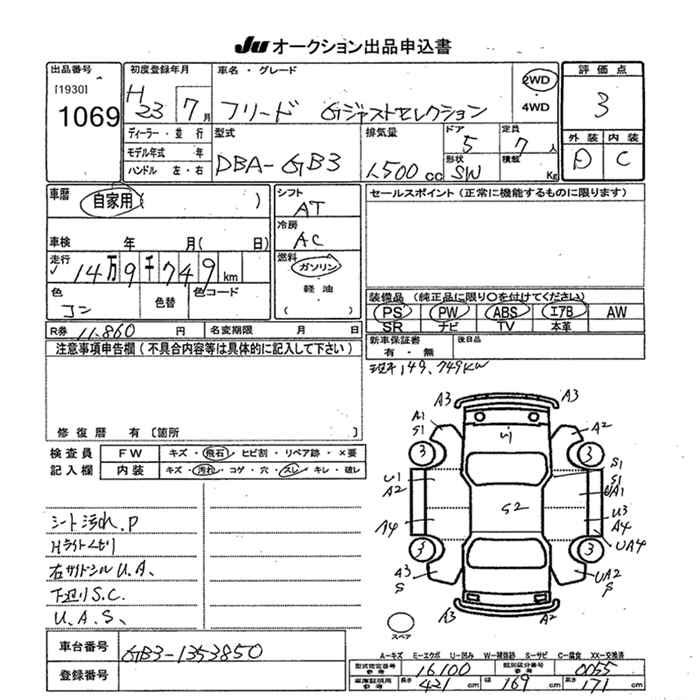 JU オークション出品申込書
出品番号
[1930]
1069
初度登録年月
H 23 7月
車名・グレード
フリード Gジャストセレクション
2WD
・
4WD
評価点
3
外装 内装
D C
ディーラー・並行
モデル年式 年
ハンドル 左・右
型式
DBA-GB3
排気量
1,500 cc
ドア
5
形状
SW
定員
7 人
積載
Kg
車歴
自家用 ( )
車検 年 月( 日)
走行
14万9千749km
色
コン
色替
色コード
R券 11,860 円
名変期限 月 日
シフト
AT
冷房
AC
燃料
ガソリン
軽油
( )
セールスポイント(正常に機能するものに限ります)
装備品(純正品に限り○を付けてください)
PS PW ABS エアB AW
SR ナビ TV 本革
新車保証書
有・無
後日品
149,749Km
注意事項申告欄(不具合内容等は具体的に記入して下さい)
修復歴 有〔箇所
検査員
記入欄
FW キズ・飛石・ヒビ割・リペア跡・×要
内装 キズ・汚れ・コゲ・穴・スレ・キレ・破レ
シート汚れ.P
Hライトくもり
右サイドシルU.A.
下廻りS.C.
U.A.S.
車台番号 GB3-1353850
登録番号
A3 A3
A1
S1
A2
3 3
U1
A2
S1
S1
UA1
S2
A4
U3
A4
UA4
3 3
A3
S
UA2
S
A3 A2
スペア
A-キズ E-エクボ U-凹み W-補修跡 S-サビ C-腐食 XX-交換済
型式指定番号
参考
16100
類別区分番号
参考
0055
車庫証明用
参考
長さ 421 cm
幅 169 cm
高さ 171 cm